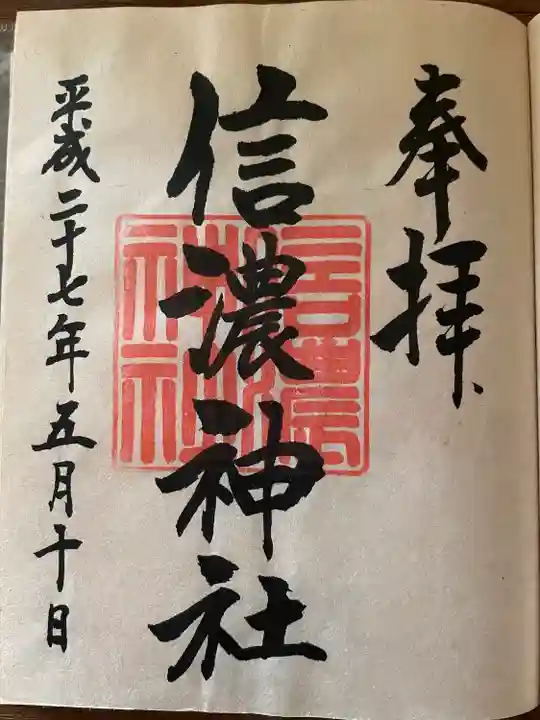 奉拝
信濃神社
平成二十七年五月十日